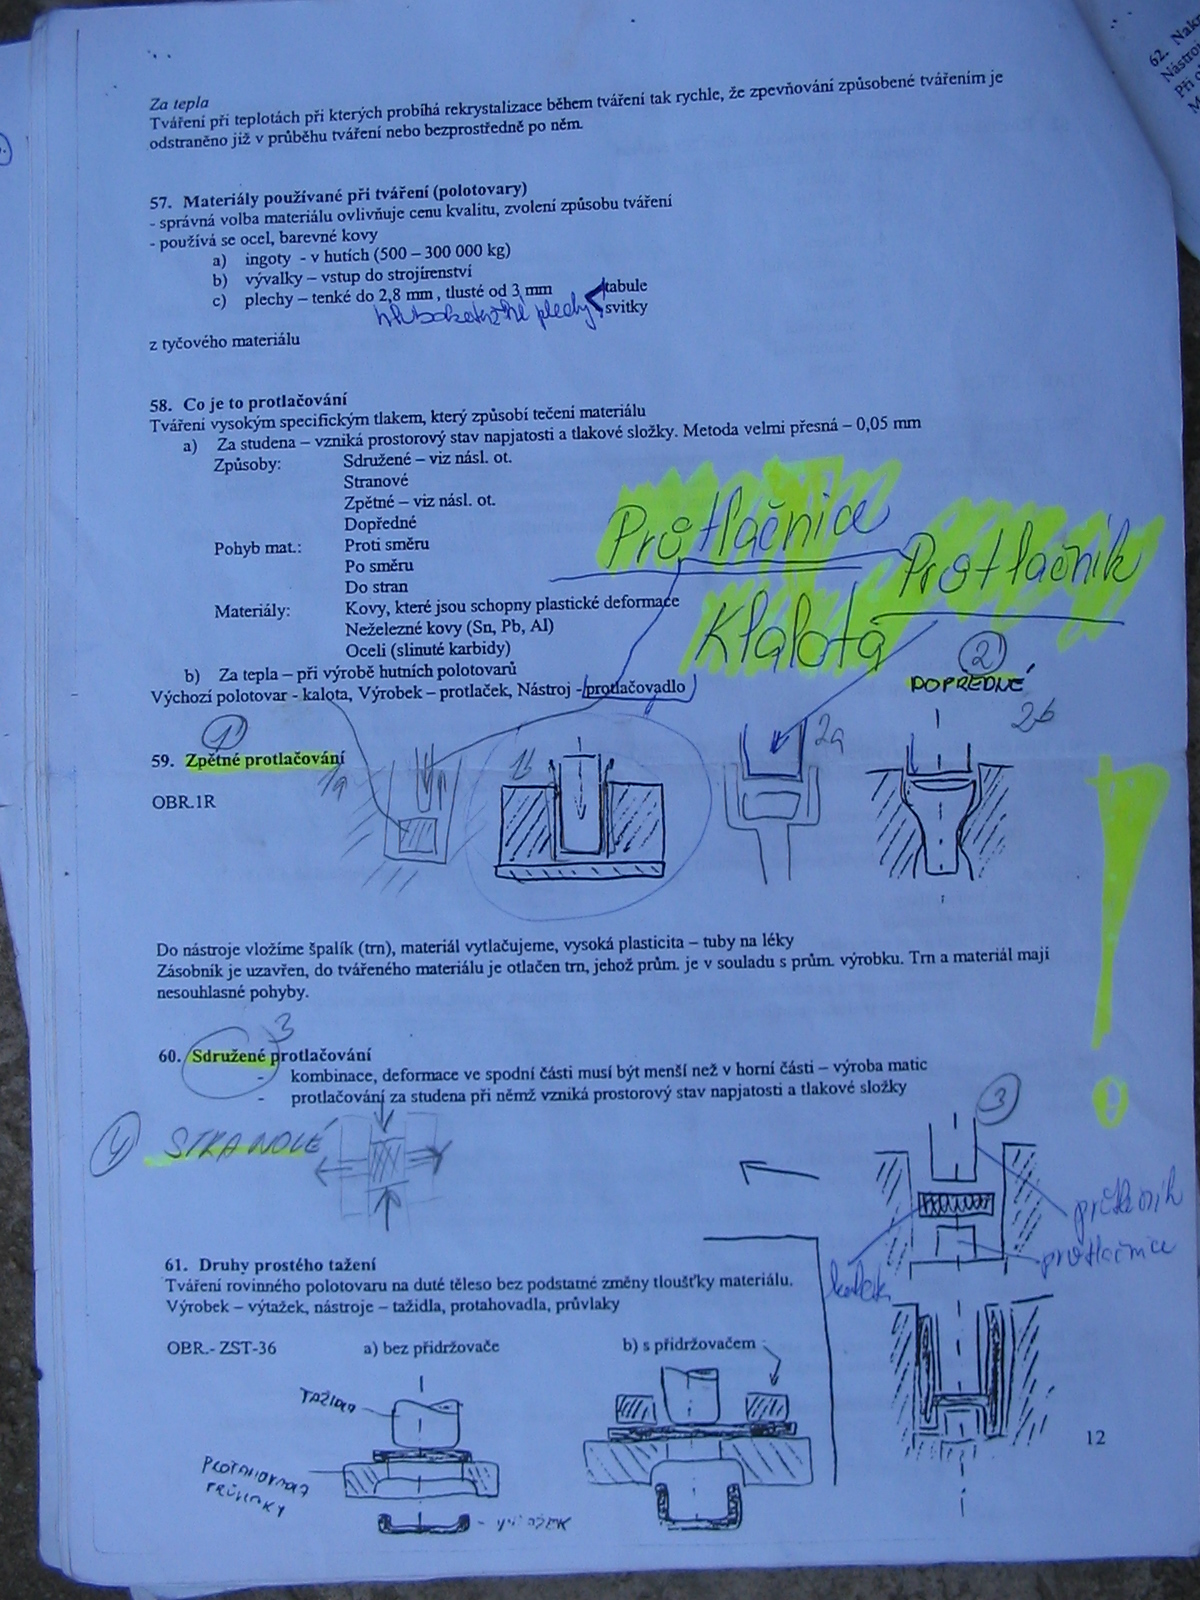 Za tepla
Tváření při teplotách při kterých probíhá rekrystalizace během tváření tak rychle, že zpevňování způsobené tvářením je
odstraněno již v průběhu tváření nebo bezprostředně po něm.
57. Materiály používané při tváření (polotovary)
- správná volba materiálu ovlivňuje cenu kvalitu, zvolení způsobu tváření
- používá se ocel, barevné kovy
a) ingoty - v hutích (500 – 300 000 kg)
b) vývalky – vstup do strojírenství
c) plechy – tenké do 2,8 mm , tlusté od 3 mm
tabule
svitky
plechy
z tyčového materiálu
58. Co je to protlačování
Tváření vysokým specifickým tlakem, který způsobí tečení materiálu
a) Za studena – vzniká prostorový stav napjatosti a tlakové složky. Metoda velmi přesná – 0,05 mm
Způsoby: Sdružené – viz násl. ot.
Stranové
Zpětné – viz násl. ot.
Dopředné
Pohyb mat.: Proti směru
Po směru
Do stran
Materiály: Kovy, které jsou schopny plastické deformace
Neželezné kovy (Sn, Pb, Al)
Oceli (slinuté karbidy)
Protlačnice
Protlačník
Klalota
b) Za tepla – při výrobě hutních polotovarů
Výchozí polotovar - kalota, Výrobek – protlaček, Nástroj - protlačovadlo
2
DOPŘEDNÉ
1
59. Zpětné protlačování
1a
1b
2a
2b
OBR.1R
Do nástroje vložíme špalík (trn), materiál vytlačujeme, vysoká plasticita – tuby na léky
Zásobník je uzavřen, do tvářeného materiálu je otlačen trn, jehož prům. je v souladu s prům. výrobku. Trn a materiál mají
nesouhlasné pohyby.
3
60. Sdružené protlačování
- kombinace, deformace ve spodní části musí být menší než v horní části – výroba matic
- protlačování za studena při němž vzniká prostorový stav napjatosti a tlakové složky
3
4 STRANOVÉ
průtlačník
protlačnice
61. Druhy prostého tažení
Tváření rovinného polotovaru na duté těleso bez podstatné změny tloušťky materiálu.
Výrobek – výtažek, nástroje – tažidla, protahovadla, průvlaky
OBR.- ZST-36 a) bez přidržovače b) s přidržovačem
TAŽIDLO
12
- VÝTAŽEK